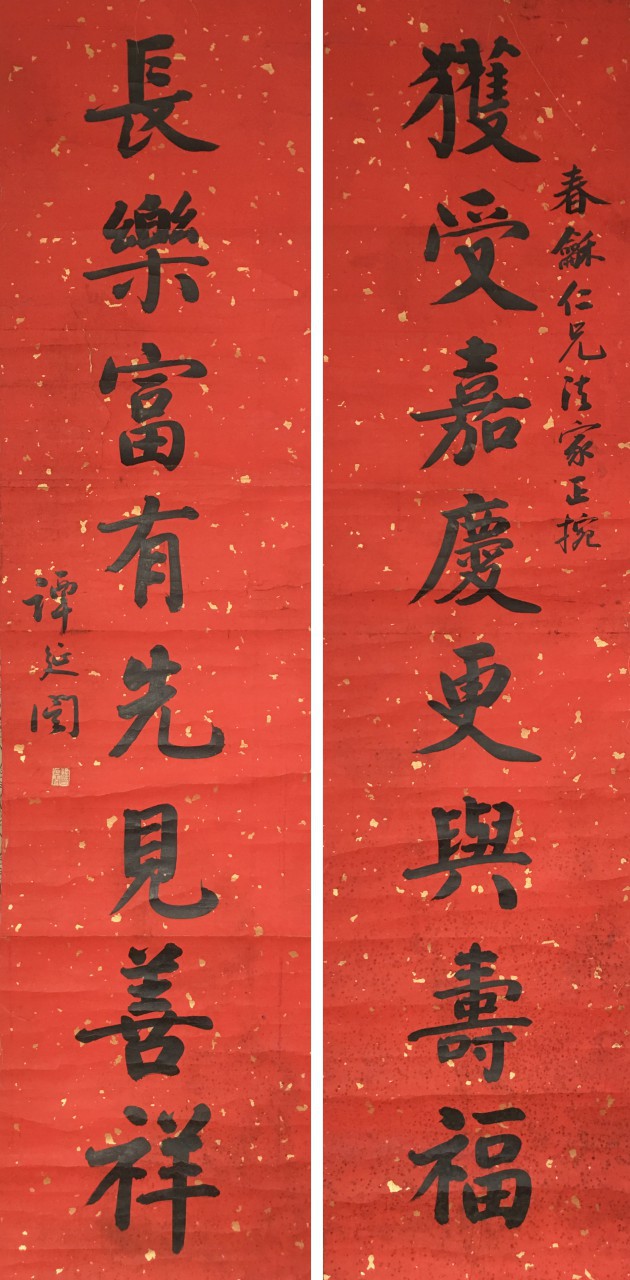 春龢仁兄法家正捥
獲受嘉慶更與壽福
長樂富有先見善祥
譚延闓